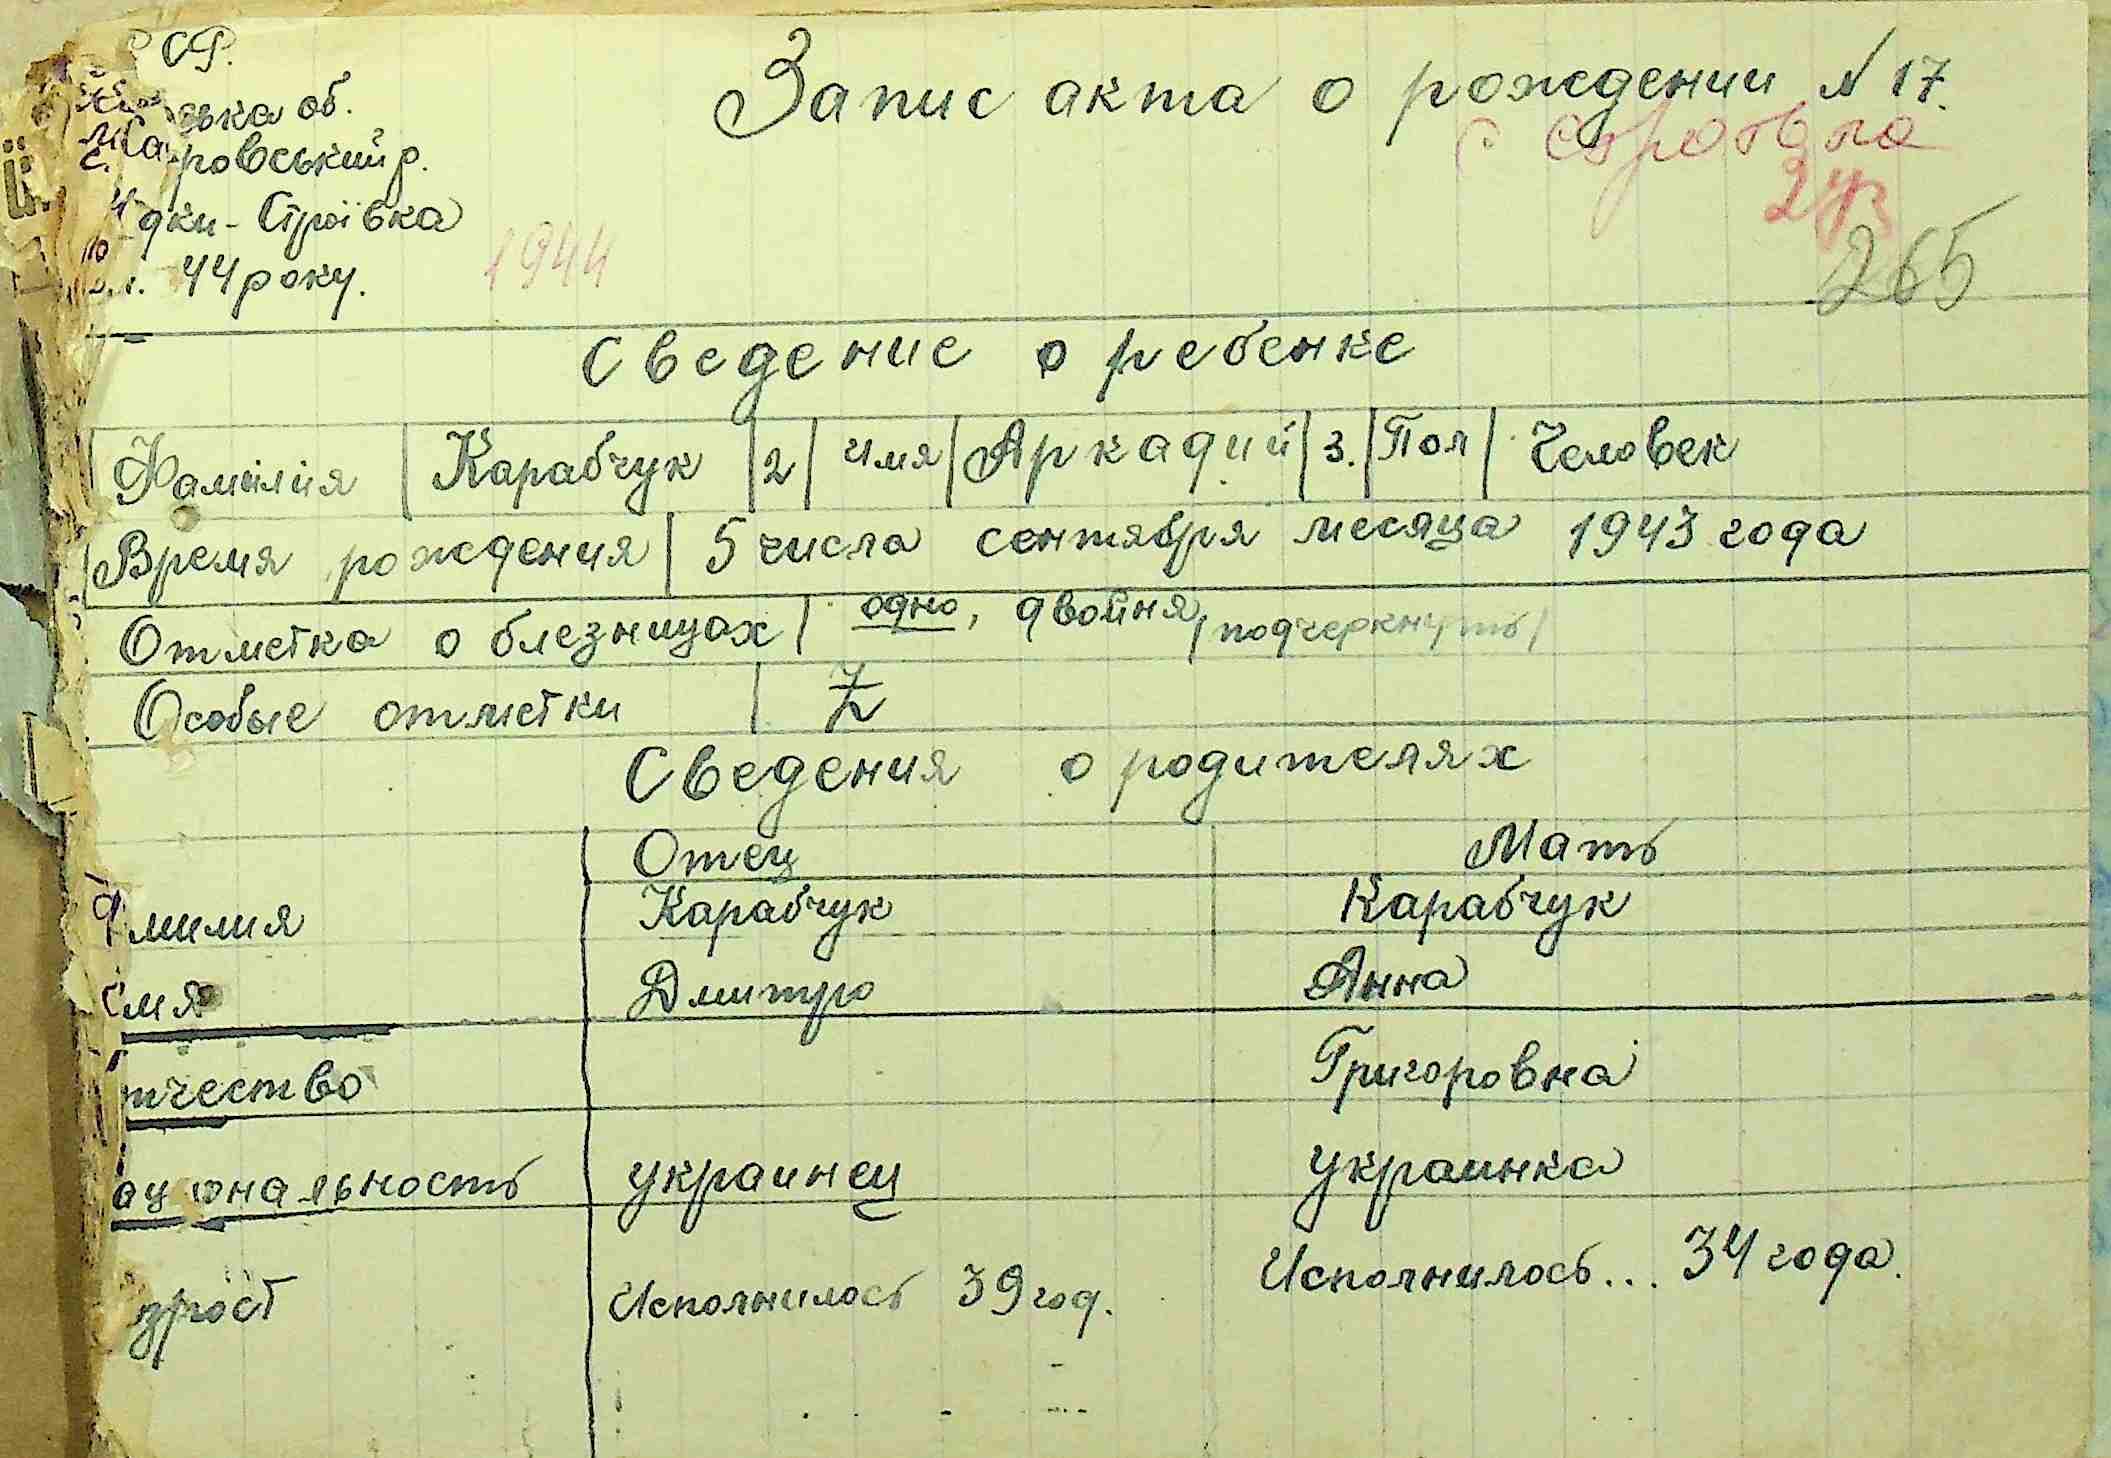 СР.
ська об.
ровський р.
дки - Строївка
44 року.
1944
Запис акта о рождении N 17.
с Строївка
265
Сведение о ребенке
Фамилия Карабчук 2 имя Аркадий 3. Пол Человек
Время рождения 5 числа сентября месяца 1943 года
Отметка о блезницах одно, двойня /подчеркнуть/
Особые отметки Z
Сведения о родителях
Отец Мать
милия Карабчук Карабчук
мя Дмитро Анна
тчество Григоровна
ациональность украинец украинка
зрост Исполнилось 39 год. Исполнилось... 34 года.